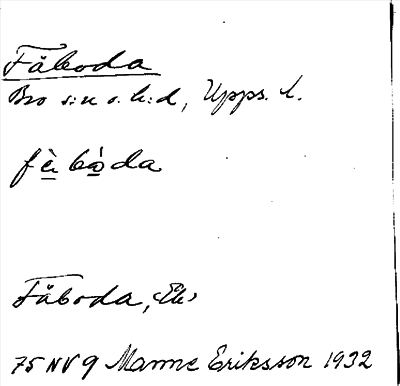 Fäboda
Bro s:n o. h:d, Upps. l.
fæ̀ bóda
Fäboda, ‹Ek›
75 NV 9 Manne Eriksson 1932